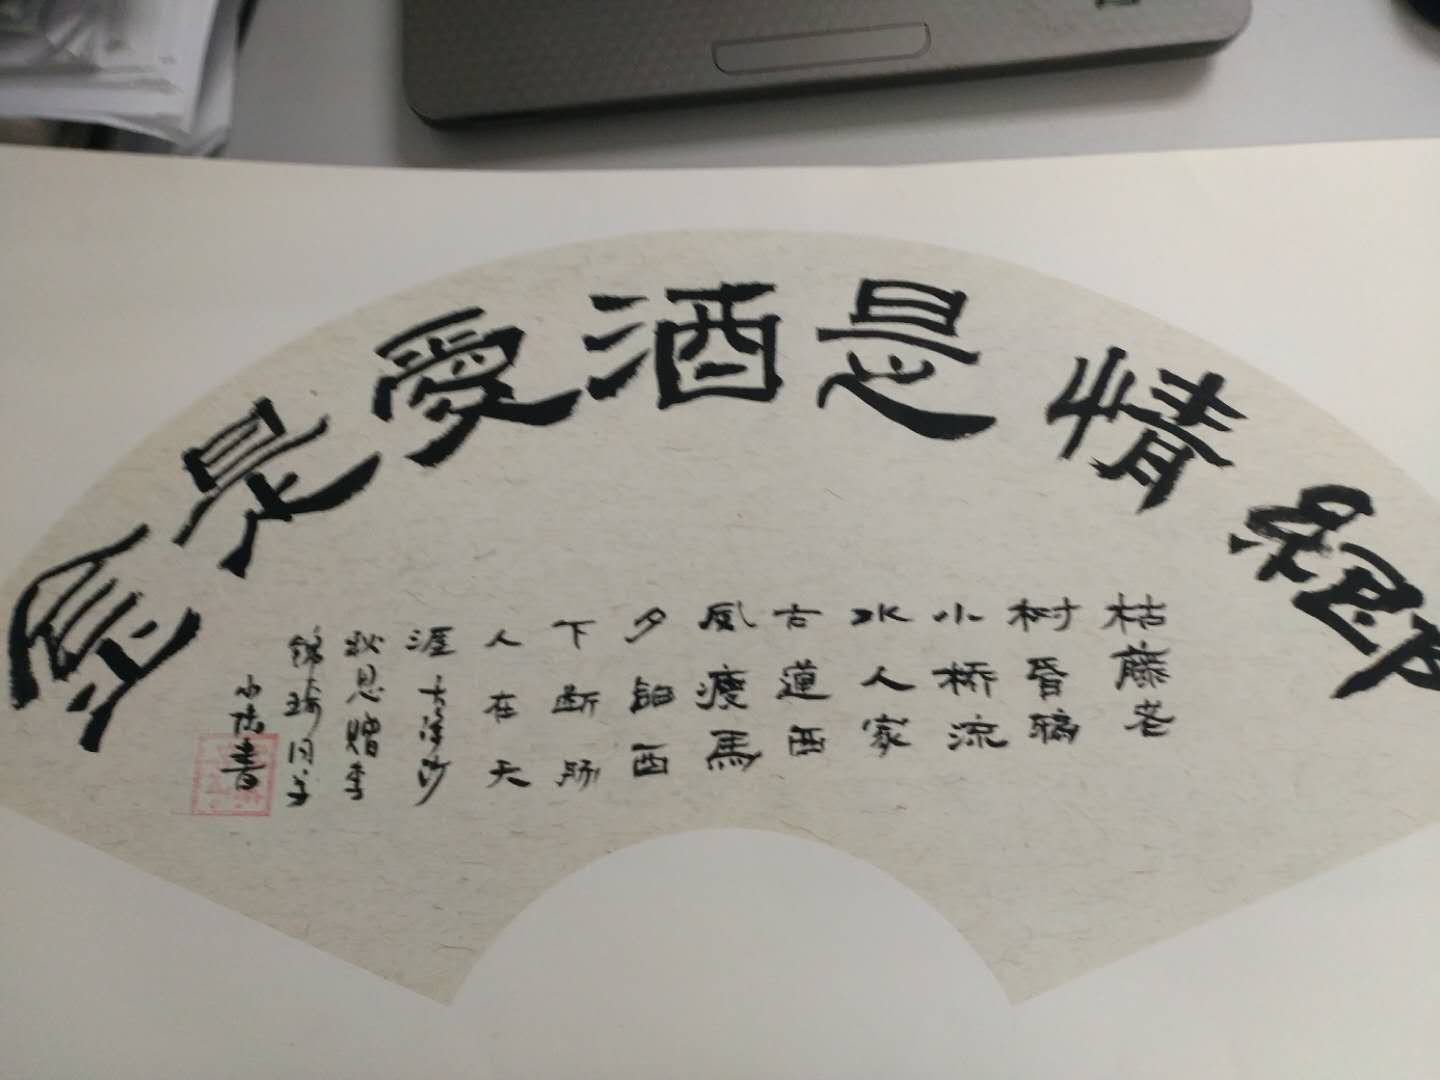 鄉情是酒愛是金
枯藤老
树昏鴉
小桥流
水人家
古道西
風瘦馬
夕陽西
下断肠
人在天
涯天净沙
秋思赠李
同学
小陆書